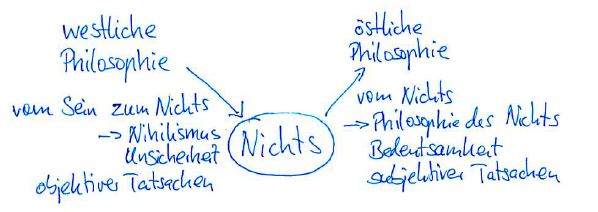 westliche
Philosophie
vom Sein zum Nichts
→ Nihilismus
Unsicherheit
objektiver Tatsachen
Nichts
östliche
Philosophie
vom Nichts
→ Philosophie des Nichts
Bedeutsamkeit
subjektiver Tatsachen